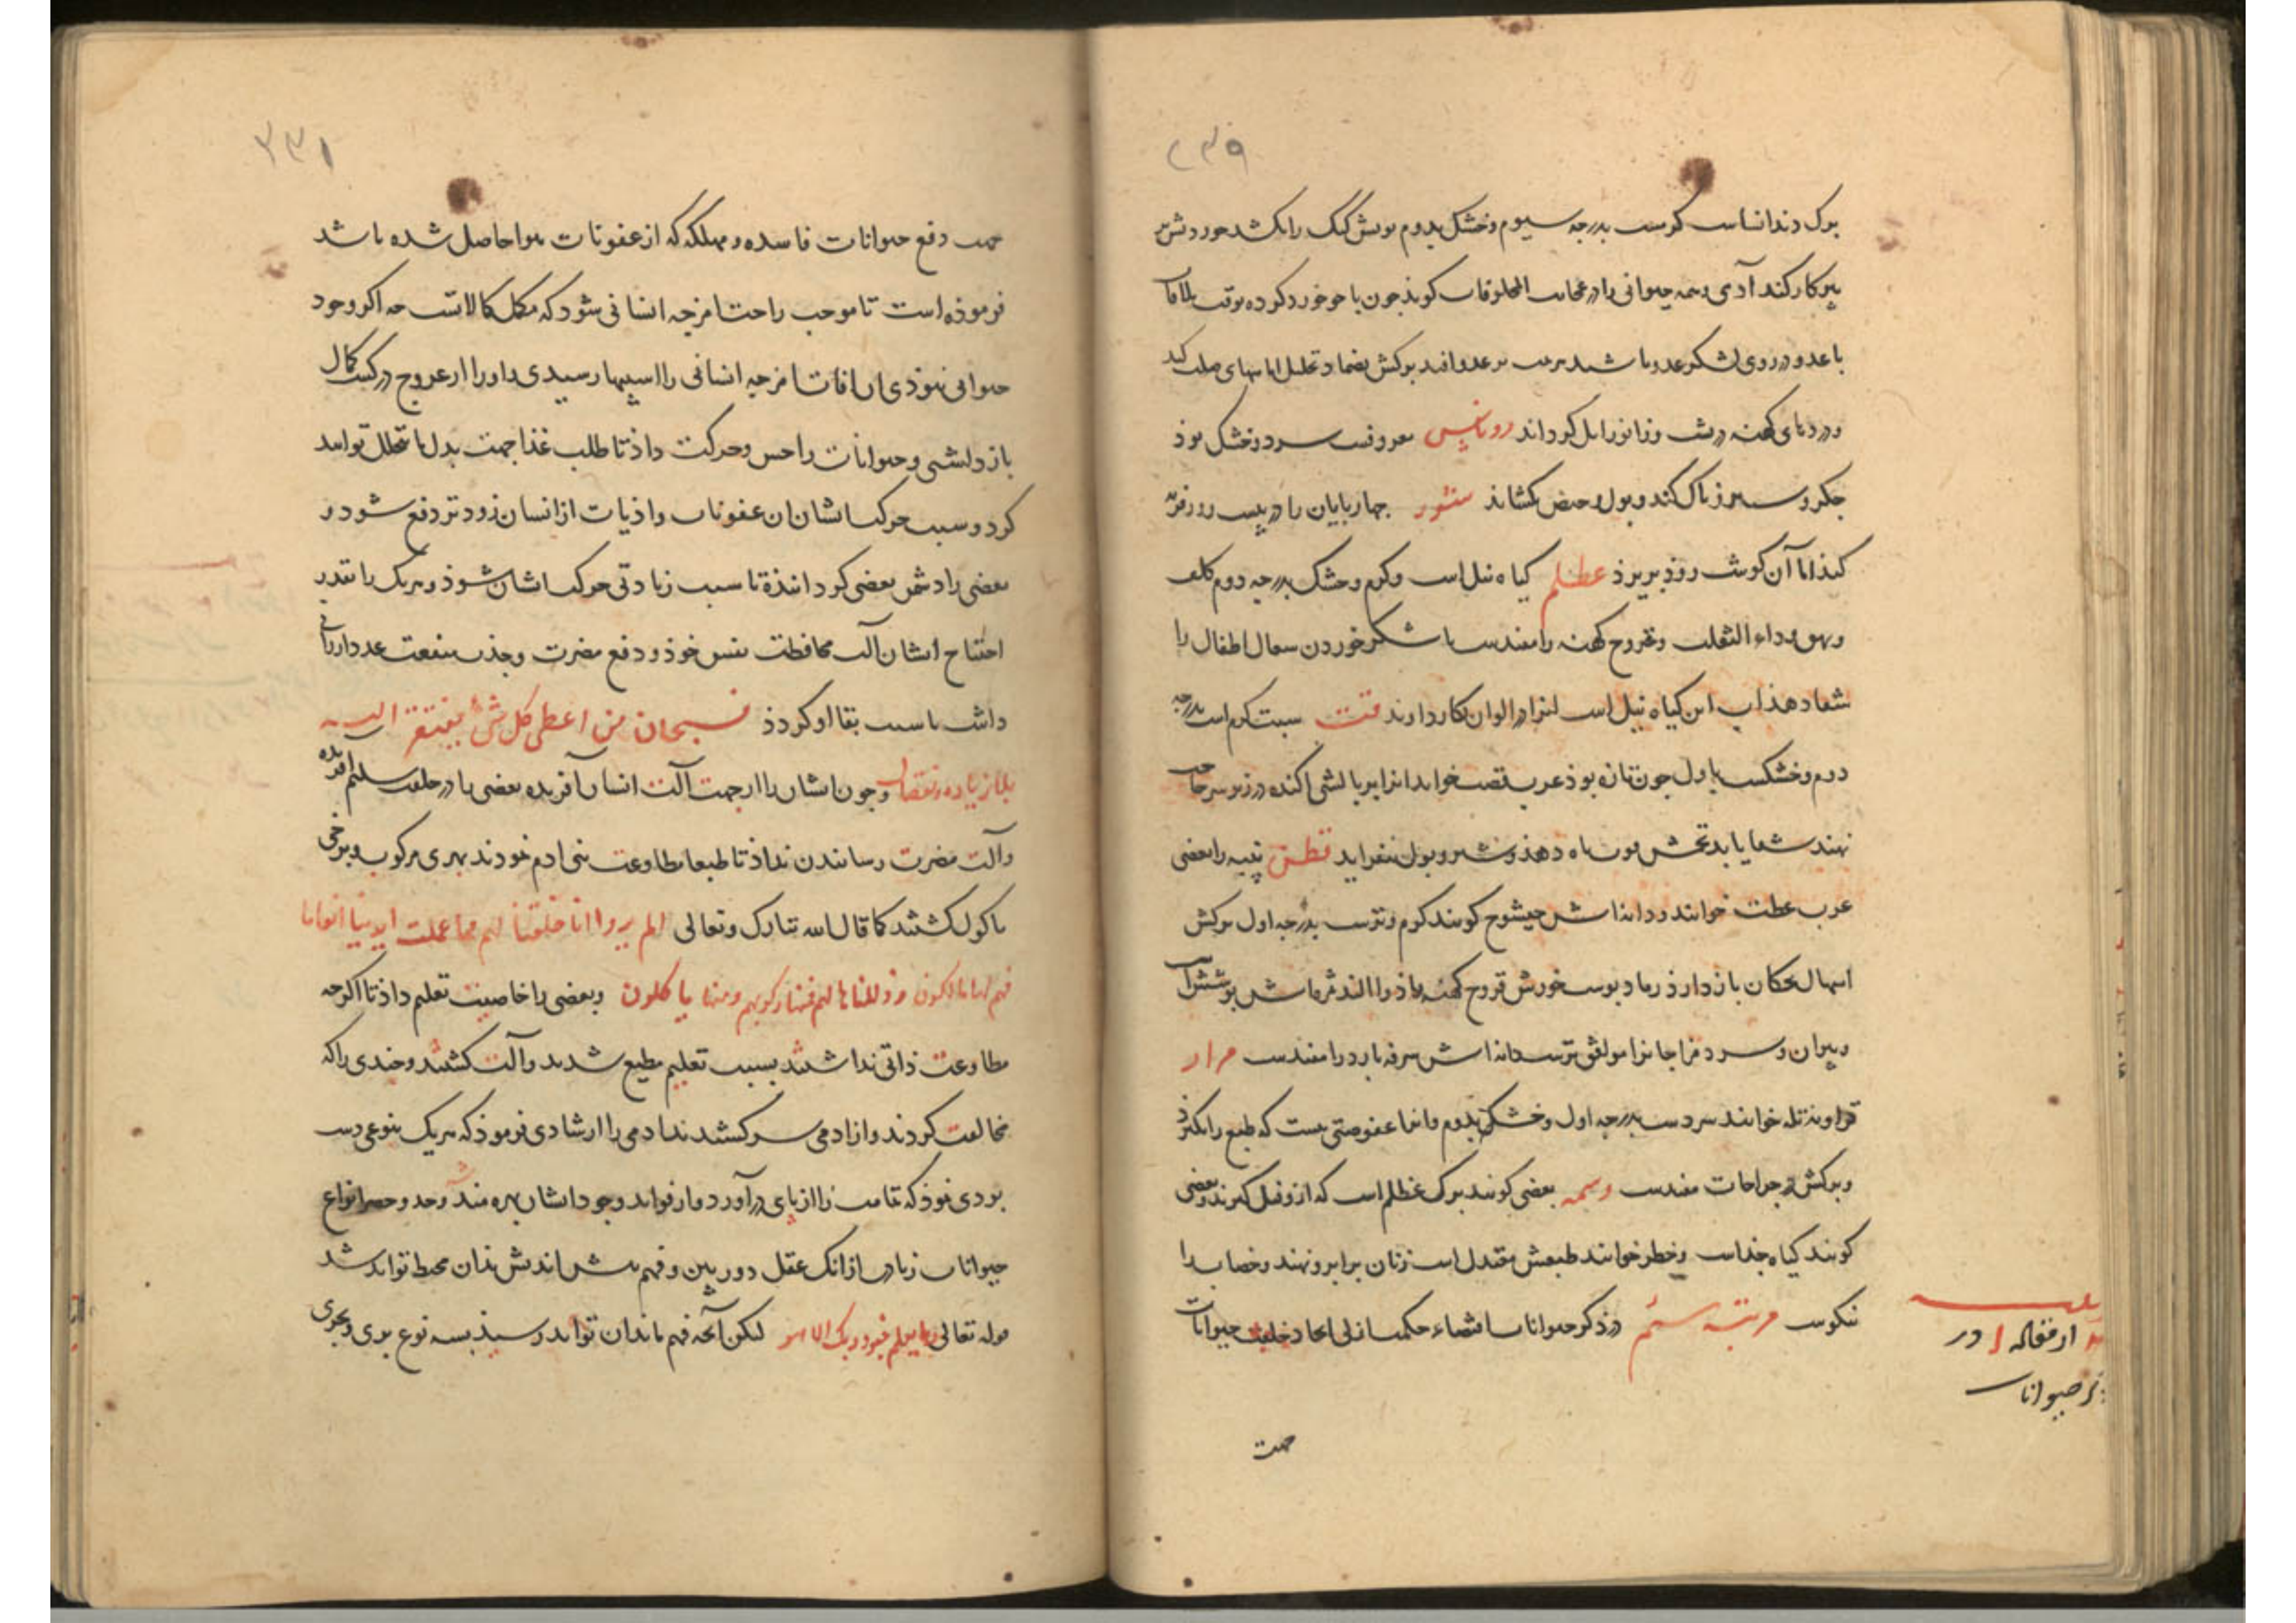 ۲۳۹
برک دندانساست کرمست بدرجه سیوم و خشک بدوم بویش کیک را بکشد خوردنش بر
کار کند آدمی و همه حیوانی را در عجایب المخلوقات کویند چون با جو خورد کرده بوقت ملاقات
با عدو در روی لشکر عدو باشند برعدو افتد برکش بضماد تحلیل اماسهای صلب کند
و دردهای کهنه پشت و زانو زایل کرداند روناس معروفست سرد و خشک بود
جکر و سپرز پاک کند و بول و حیض بکشاند چهاربایان را در بیست روز فربه
کند اما آن کوشت زود بریزد عظلم کیاه نیل است و کرم و خشک بدرجه دوم کلف
و بهق و داء الثعلب و قروح کهنه را مفیدست با شکر خوردن سعال اطفال را
شفا دهد آب این کیاه نیل است الوان بکار دارند قت سبت کرم است بدرجه
دوم و خشکست باول چون تازه بود عرب خواند انرا بر بالشی اکنده در زیر سر صاحب
نهند شفا یابد تخمش باه دهد و شیر و بول بیفزاید قطن پنبه را بعضی
عرب عطب خوانند و دانه اش حیشوج کویند کرم و ترست بدرجه اول برکش
اسهال کودکان باز دارد رماد پوست قروح کهنه
و پیران و سرد مزاجانرا موافق ترست دانه اش سرفه بارد را مفیدست مرار
خوانند سردست بدرجه اول و خشک بدوم و انرا عفوصتی هست که طبع را
و برکش جراحات مفیدست وسمه بعضی کویند برک عظلم است که ازو نیل کیرند و بعضی
کویند کیاه جداست و خطر خوانند طبعش معتدل است زنان بر ابرو نهند و خضاب را
نیکوست مرتبه سیم در ذکر حیوانات اقتضاء حکمت ازلی ایجاد خلقت حیوانات
از مقاله ا در
ذکر حیوانات
جهت
۳۳۱
جهت دفع حیوانات فاسده و مهلکه که از عفونات هوا حاصل شده باشد
فرموده است تا موجب راحت امزجه انسانی شود که مکمل کمالاتست چه اکر وجود
حیوانی نبودی ان افات امزجه انسانی را اسیبها رسیدی و او را از عروج در کسب کمال
باز داشتی و حیوانات را حس و حرکت داد تا طلب غذا جهت بدل ما تحلل تواند
کرد و سبب حرکت ایشان ان عفونات و اذیات از انسان زودتر دفع شود و
بعضی را دشمن بعضی کردانیده تا سبب زیادتی حرکت ایشان شود و هریک را بقدر
احتیاج ایشان آلت محافظت نفس خود و دفع مضرت و جذب منفعت
داشت تا سبب بقا او کردد فسبحان من اعطی کل شئ یفتقر الیه
بلا زیاده و نقصان و چون ایشان را از جهت آلت انسان آفریده بعضی را در خلقت سلیم آفریده
و آلت مضرت رسانیدن نداد تا طبعا مطاوعت بنی ادم نمودند بهری مرکوب و برخی
ماکول کشتند کما قال الله تبارک و تعالی اولم یروا انا خلقنا لهم مما عملت ایدینا انعاما
فهم لها مالکون و ذللناها لهم فمنها رکوبهم ومنها یاکلون و بعضی را خاصیت تعلیم داد تا اکرچه
مطاوعت ذاتی نداشتند بسبب تعلیم مطیع شدند و آلت کشتند و چندی را که
مخالفت کردند و از ادمی سرکشیدند ادمی را ارشادی فرمود که هریک بنوعی دست
بردی نمود که تمامت را از پای در آورد و از فواید وجود ایشان بهره مند شد و حد و حصر انواع
حیوانات زیادت از انک عقل دوربین و فهم بیش اندیش بدان محیط تواند شد
قوله تعالی وما یعلم جنود ربک الا هو لیکن آنچه فهم بدان تواند رسید بسه نوع بری و بحری